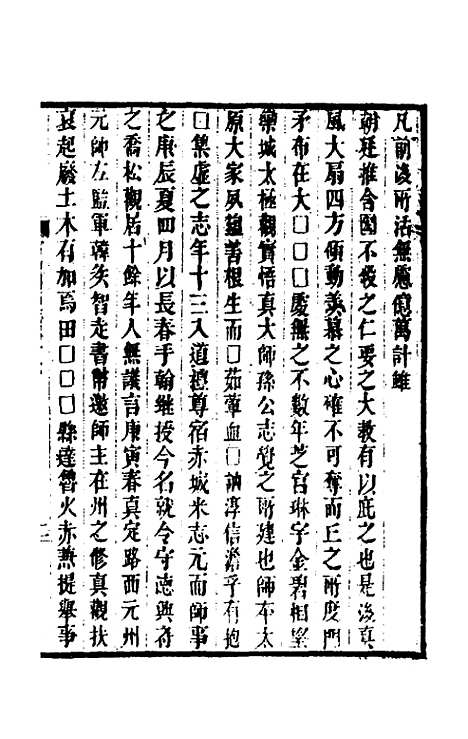 凡前後所活無慮億萬計雖
朝廷推含國不殺之仁要之大教有以庇之也是後真
風大扇四方傾動羨慕之心確不可奪而丘之所度門
矛布在大□□□慶無之不數年芝宮琳宇金碧相望
欒城太極觀實悟真大師孫公志覺之所建也師本太
原大家夙蘊善根生而□茹葷血□訥淳信澹乎有抱
□集虛之志年十三入道禮尊宿赤城米志元而師事
之庚辰夏四月以長春手翰繼授今名就令守志興府
之喬松觀居十餘年人無議言庚寅春真定路西元州
元帥左監軍韓矦智走書幣邀師主在州之修真觀扶
衰起廢土木有加焉田□□□縣達魯火赤兼提舉事